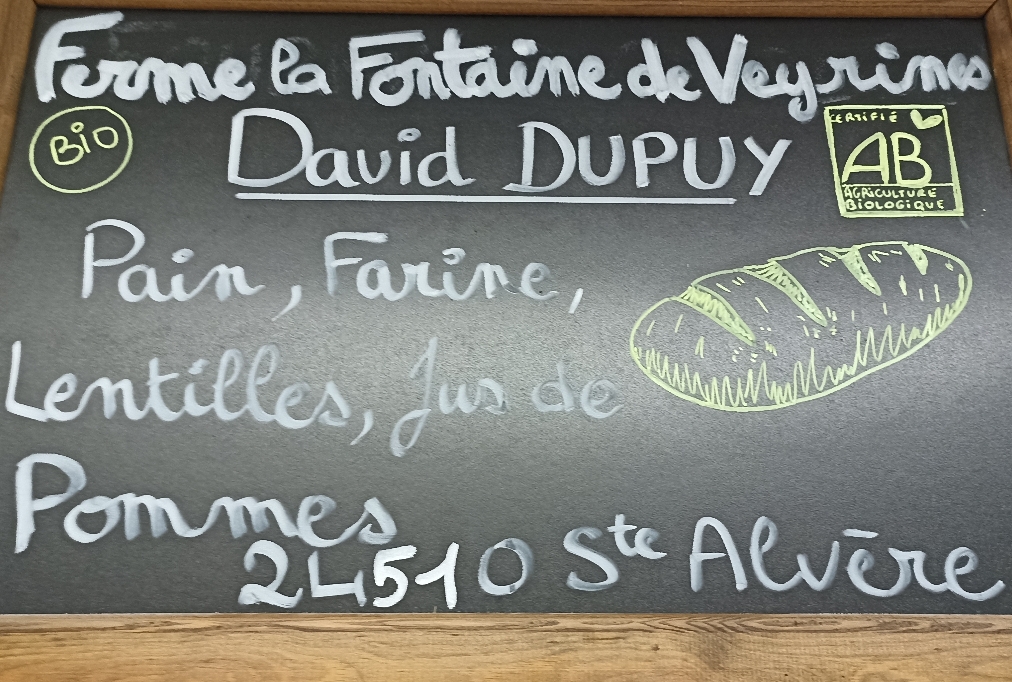 Ferme la Fontaine de Veyrines
BIO
David DUPUY
CERTIFIÉ
AB
AGRICULTURE
BIOLOGIQUE
Pain, Farine,
Lentilles, Jus de
Pommes
24510 Ste Alvère